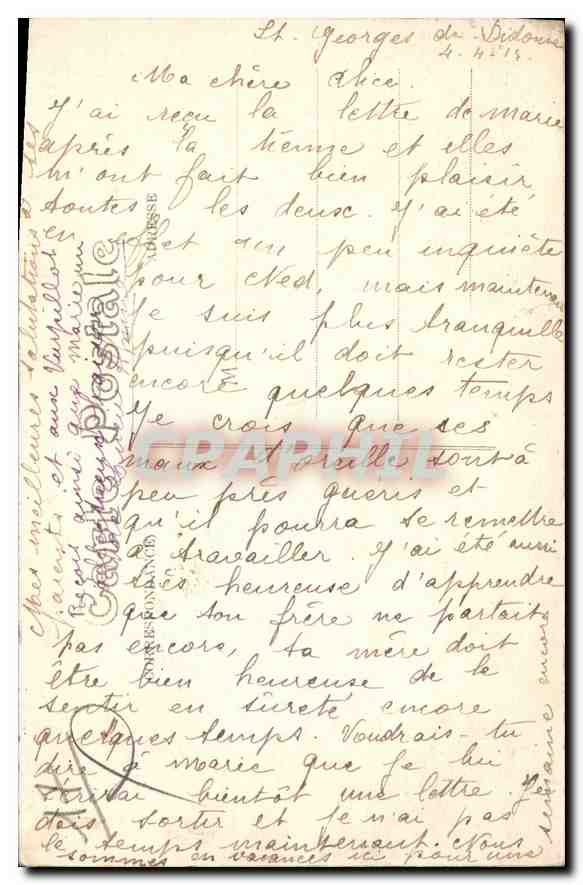 St. Georges de Didonne
4. 4. 15.
Ma chère Alice.
J'ai reçu la lettre de Marie
après la tienne et elles
m'ont fait bien plaisir
toutes les deux. J'ai été
en effet un peu inquiète
pour Ned, mais maintenant
je suis plus tranquille
puisqu'il doit rester
encore quelques temps
Je crois que ses
maux d'oreille sont à
peu près guéris et
qu'il pourra se remettre
à travailler. J'ai été aussi
très heureuse d'apprendre
que ton frère ne partait
pas encore, ta mère doit
être bien heureuse de le
sentir en sûreté encore
quelques temps. Voudrais-tu
dire à Marie que je lui
écrirai bientôt une lettre. Je
dois sortir et je n'ai pas
le temps maintenant. Nous
sommes en vacances ici pour une
semaine encore
Mes meilleures salutations à tes
parents et aux Verpillot
Reçois ainsi que Marie un
Carte Postale
CORRESPONDANCE
ADRESSE
M
CPAPHIL